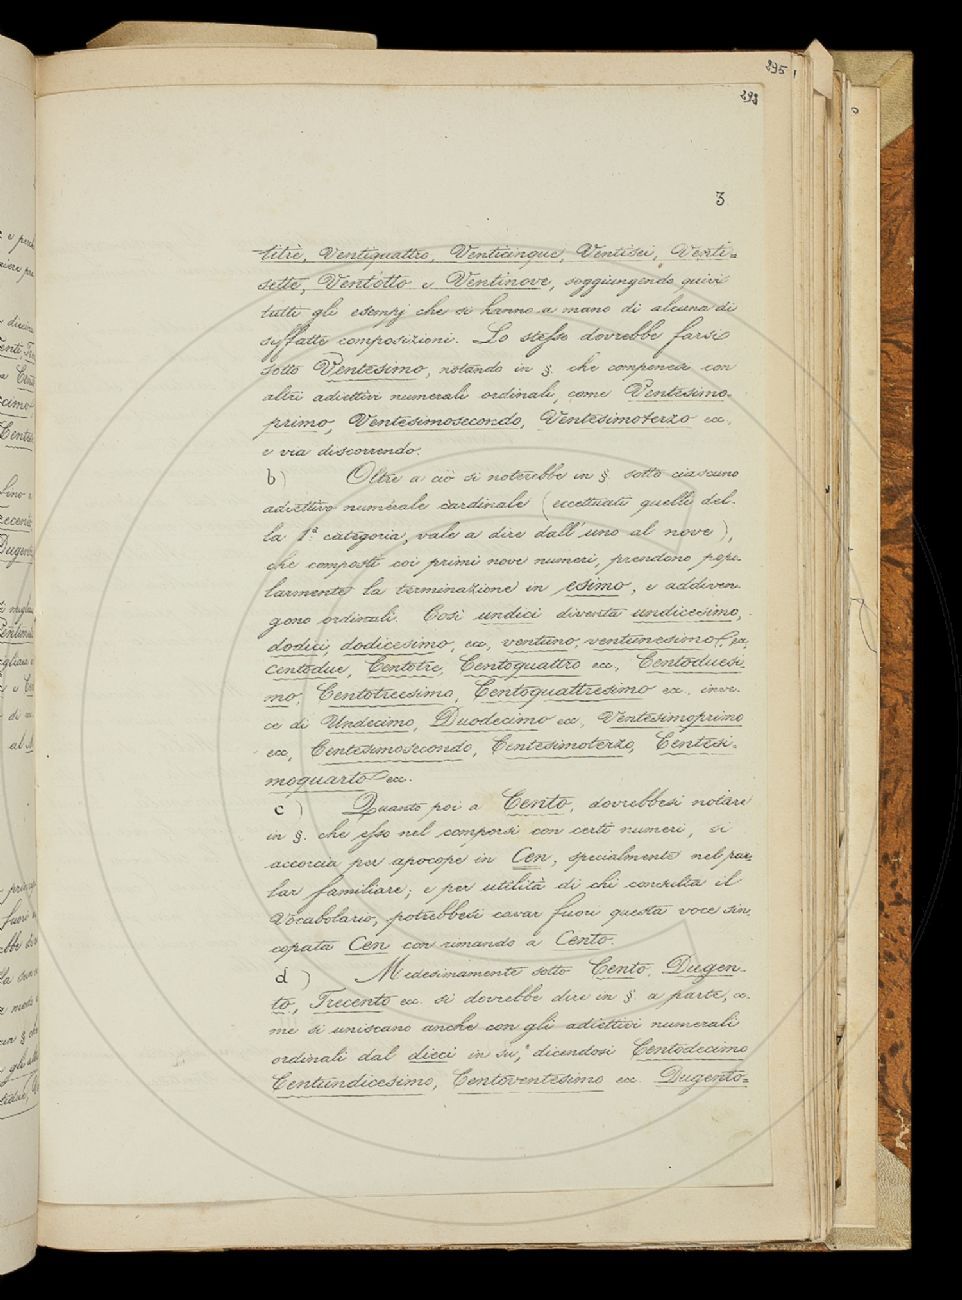 295
293
3
titrè, Ventiquattro, Venticinque, Ventisei, Venti=
sette, Ventotto e Ventinove, soggiungendo quivi
tutti gli esempj che si hanno a mano di alcuna di
siffatte composizioni. Lo stesso dovrebbe farsi
sotto Ventesimo, notando in §. che componesi con
altri adiettivi numerali ordinali, come Ventesimo-
primo, Ventesimosecondo, Ventesimoterzo ec.
e via discorrendo.
b) Oltre a ciò si noterebbe in §. sotto ciascuno
adiettivo numerale cardinale (eccettuati quelli del-
la 1ª categoria, vale a dire dall'uno al nove),
che composti coi primi nove numeri, prendono popo-
larmente la terminazione in esimo, e addiven-
gono ordinali. Così undici diventa undicesimo,
dodici, dodicesimo, ec, ventuno, ventunesimo, ec,
Centodue, Centotre, Centoquattro ec., Centoduesi
mo, Centotreesimo, Centoquattresimo ec., inve-
ce di Undecimo, Duodecimo ec, Ventesimoprimo
ec, Centesimosecondo, Centesimoterzo, Centesi-
moquarto ec.
c) Quanto poi a Cento, dovrebbesi notare
in §. che esso nel comporsi con certi numeri, si
accorcia per apocope in Cen, specialmente nel par-
lar familiare; e per utilità di chi consulta il
Vocabolario, potrebbesi cavar fuori questa voce sin
copata Cen con rimando a Cento.
d) Medesimamente sotto Cento, Dugen-
to, Trecento ec. si dovrebbe dire in § a parte, co-
me si uniscano anche con gli adiettivi numerali
ordinali dal dieci in su, dicendosi Centodecimo
Centundicesimo, Centoventesimo ec. Dugento=